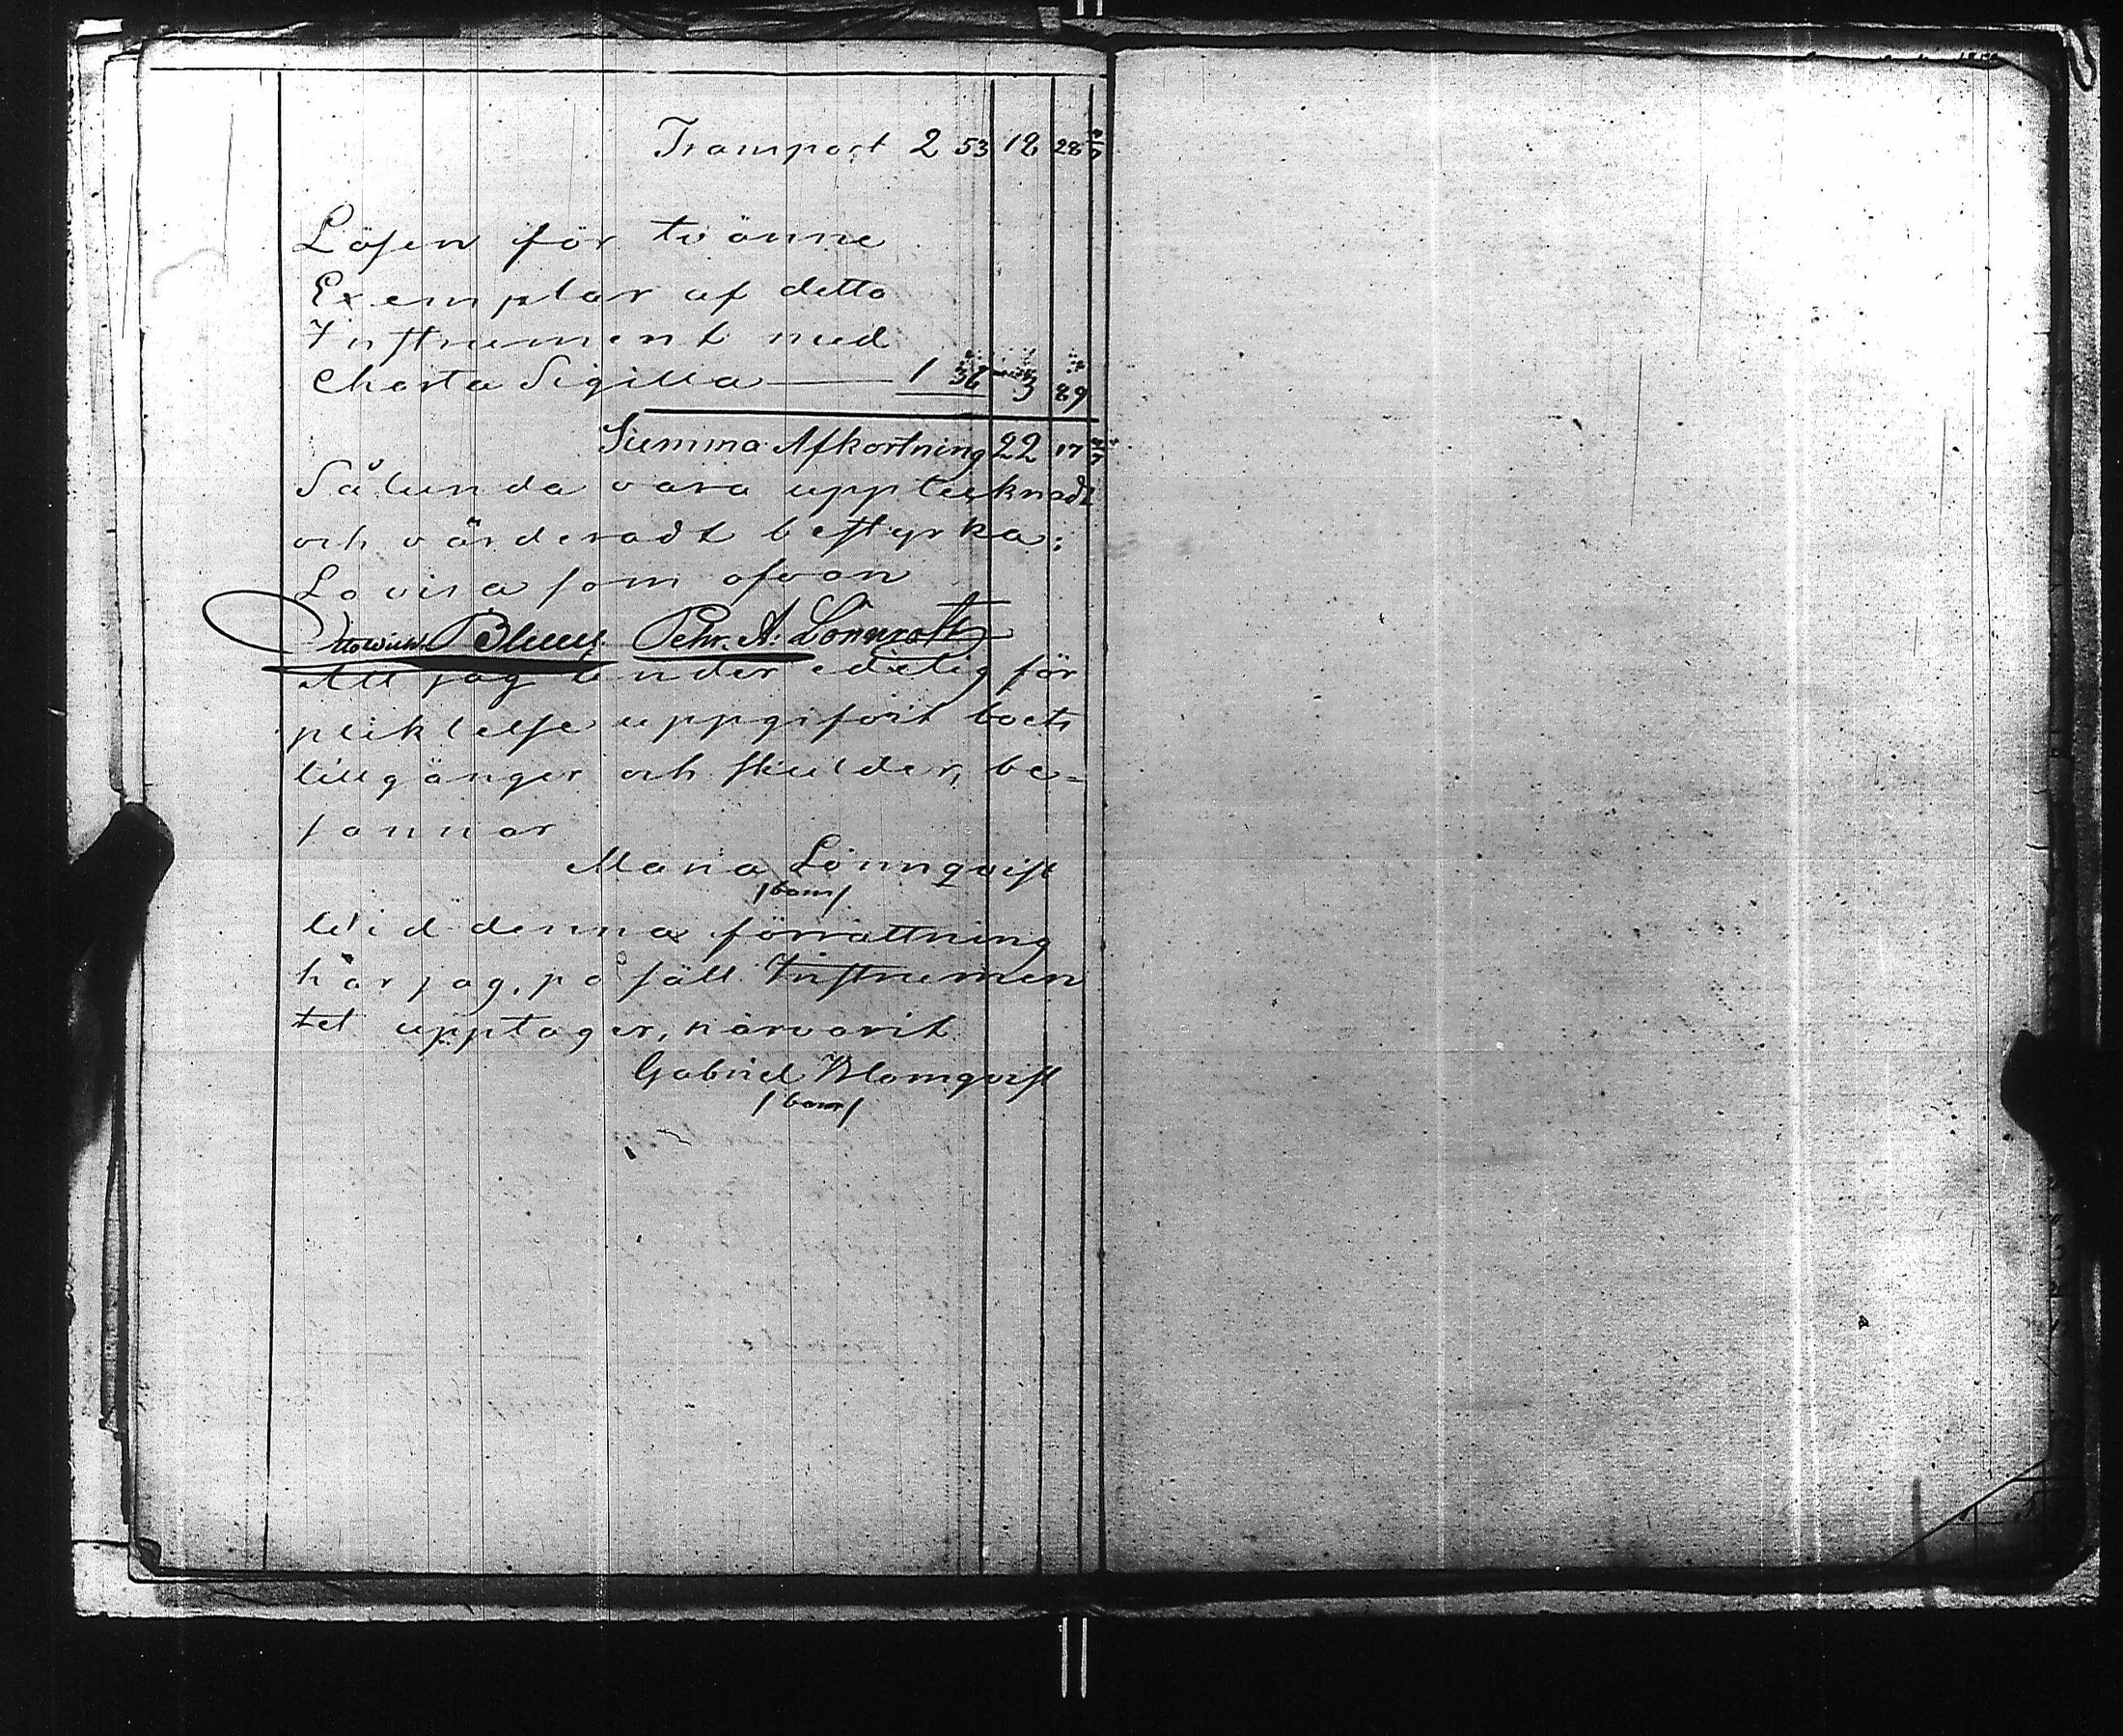 Transport 2 53 18 28 2/7
Lösen för tvänne
Exemplar af detta
Instrument med
Charta Sigilla — 1 36 3 89
Summa Afkortning 22 17 2/7
Sålunda vara upptecknadt
och värderadt bestyrka;
Lovisa som ofvan
Pehr. A. Lönnroth
Att jag under edelig för
pliktelse uppgifvit boets
tillgånger och skulder, be-
sannar
Maria Lönnqvist
/bom/
Vid denna förrättning
har jag, på sätt Instrumen
tet upptager, närvarit
Gabriel Blomqvist
/bom/